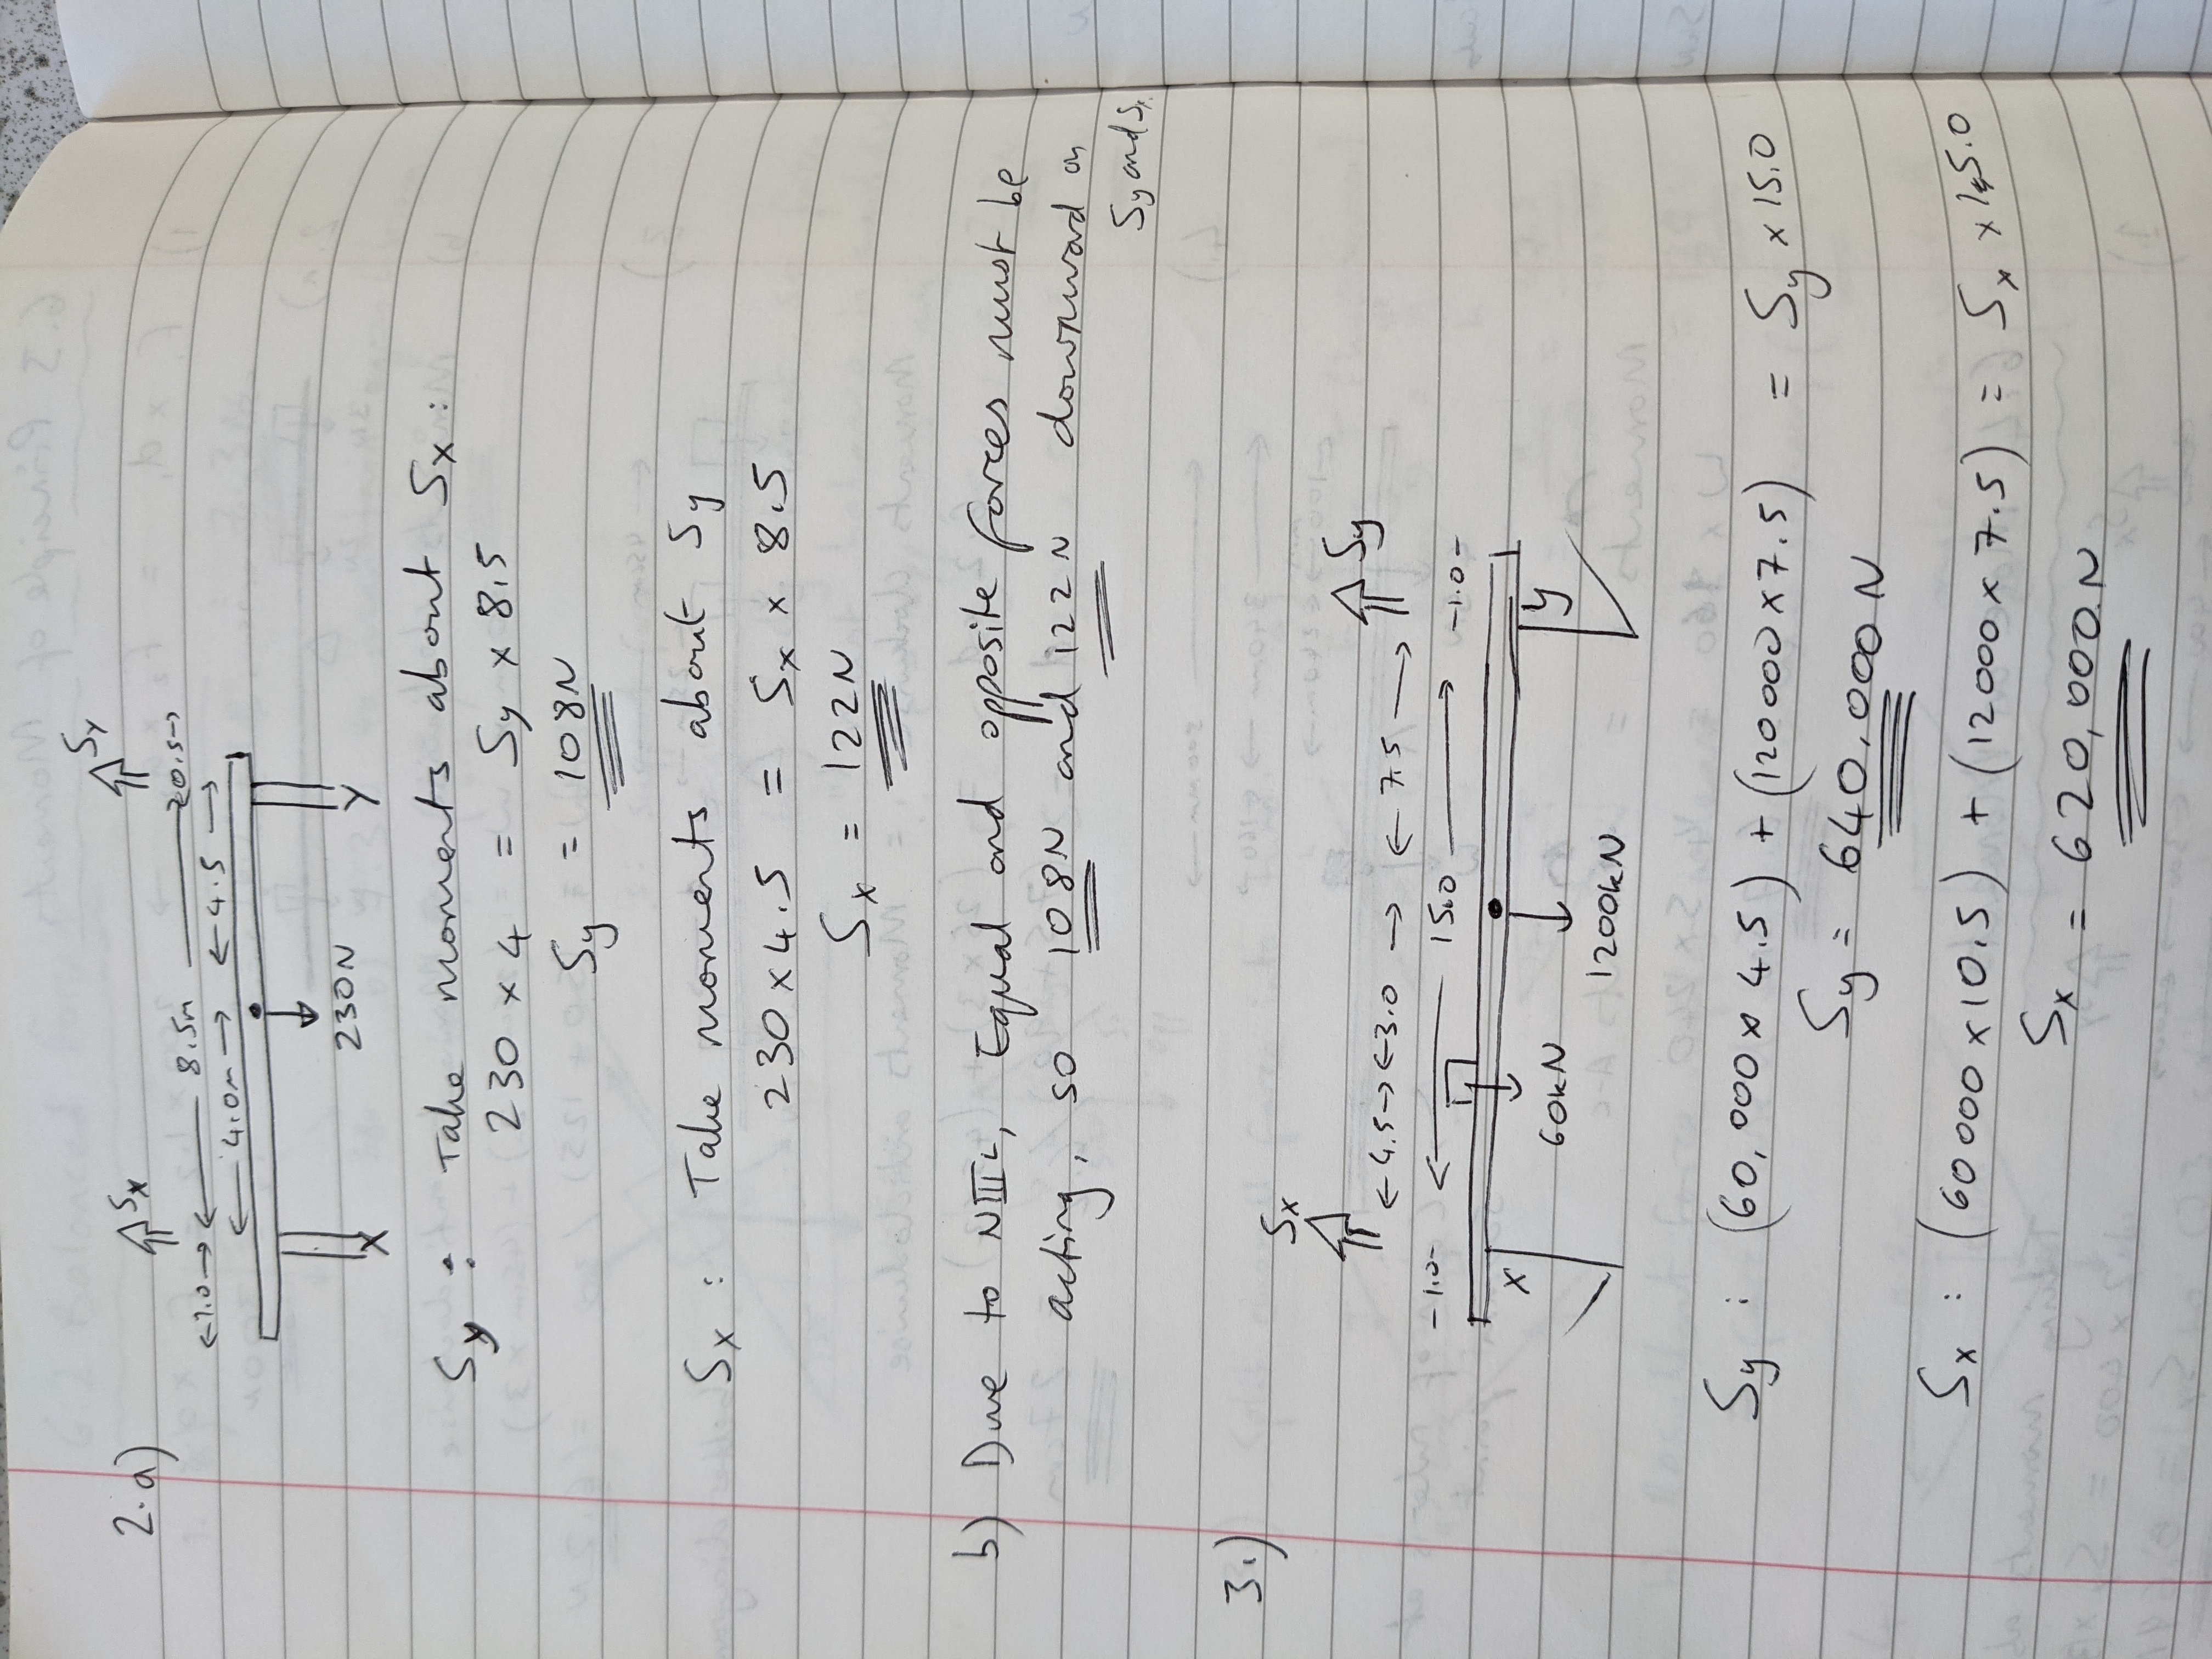 2.a)
Sx Sy
←1.0→ ← 8.5m → 0.5→
← 4.0m → ← 4.5 →
230N
X Y
Sy : Take moments about Sx:
230 × 4 = Sy × 8.5
Sy = 108N
Sx : Take moments about Sy
230 × 4.5 = Sx × 8.5
Sx = 122N
b) Due to NIIIL, Equal and opposite forces must be
acting, so 108N and 122N downward on
Sy and Sx.
3.)
Sx Sy
← 4.5 → ← 3.0 → ← 7.5 →
-1.0- ← 15.0 → -1.0-
X Y
60kN 1200kN
Sy : (60,000 × 4.5) + (120000 × 7.5) = Sy × 15.0
Sy = 640,000N
Sx : (60000 × 10.5) + (12000 × 7.5) = Sx × 15.0
Sx = 620,000N